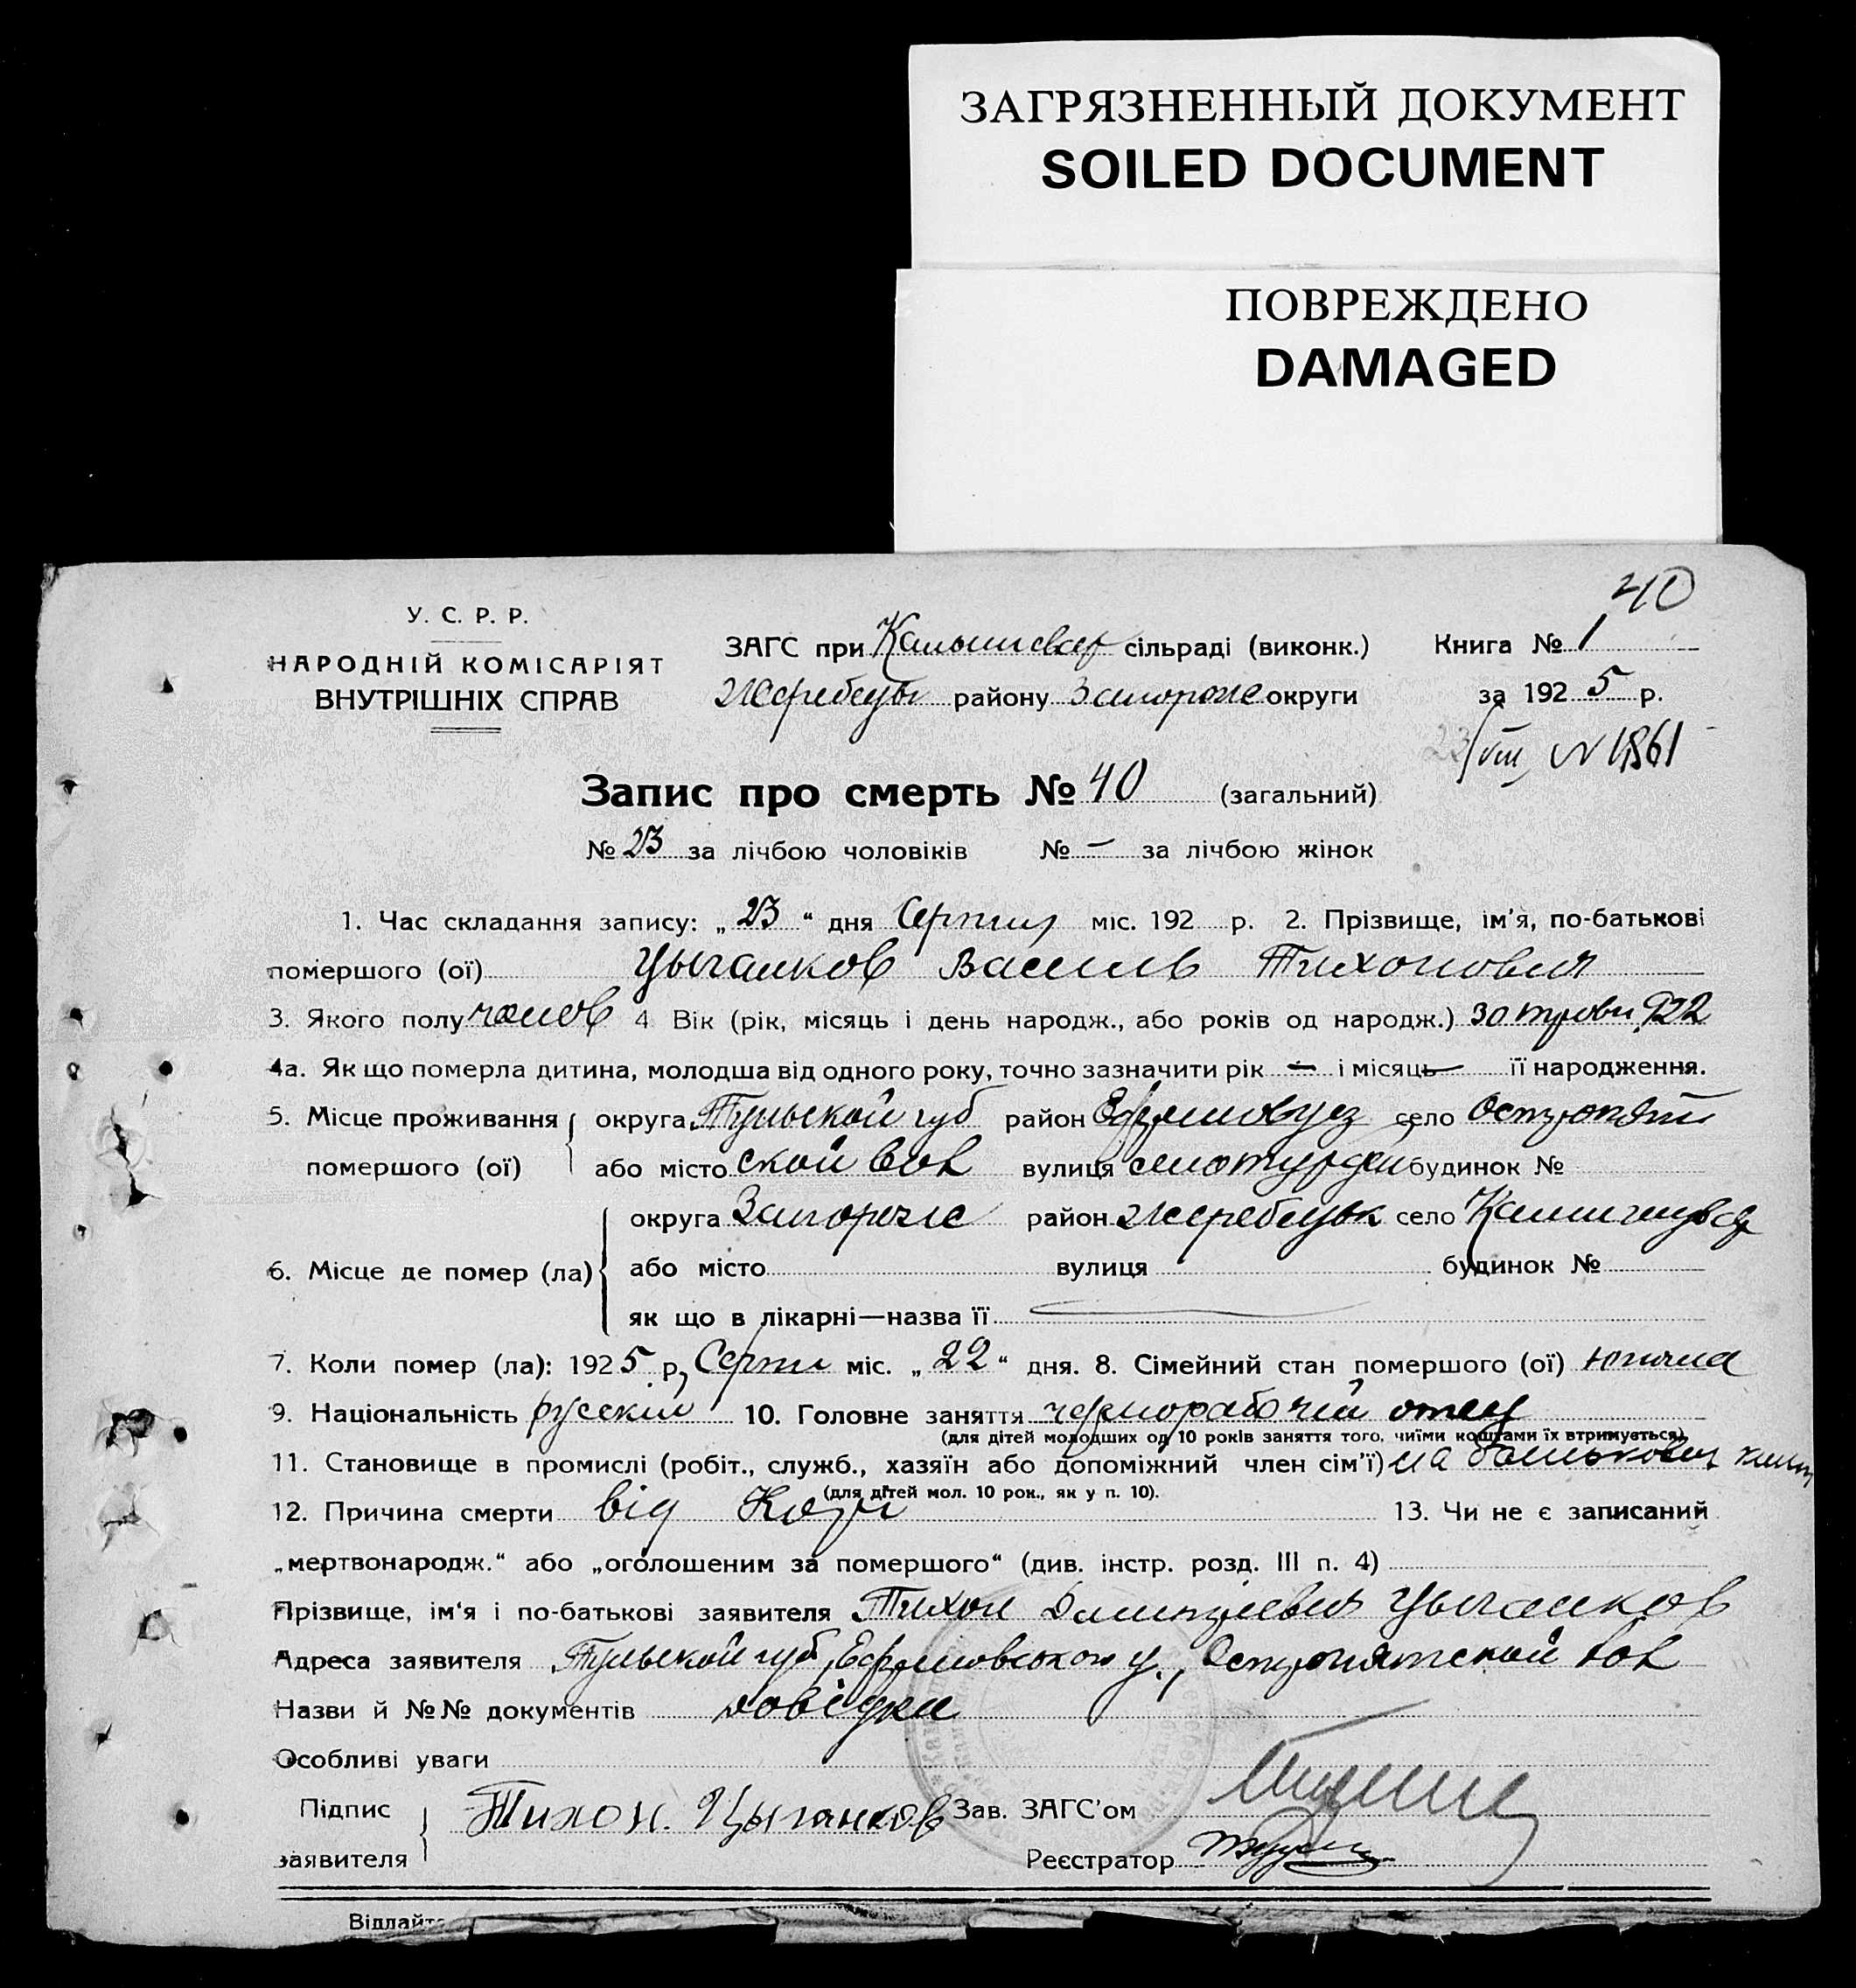 ЗАГРЯЗНЕННЫЙ ДОКУМЕНТ
SOILED DOCUMENT
ПОВРЕЖДЕНО
DAMAGED
40
У. С. Р. Р.
НАРОДНІЙ КОМІСАРІЯТ
ВНУТРІШНІХ СПРАВ
ЗАГС при сільраді (виконк.) Книга № 1
району Запорож округи за 1925 р.
23/VIII N 1861
Запис про смерть № 40 (загальний)
№ 23 за лічбою чоловіків № — за лічбою жінок
1. Час складання запису: „23“ дня Серпня міс. 192 р. 2. Прізвище, ім'я, по-батькові
помершого (ої) Цыганков Василь Тихонович
3. Якого полу чолов 4 Вік (рік, місяць і день народж., або років од народж.) 30 травн 922
4а. Як що померла дитина, молодша від одного року, точно зазначити рік — і місяць — її народження.
5. Місце проживання округа Тульской губ район село
помершого (ої) або місто ской вол вулиця будинок №
округа Запорож район Жеребецьк село
6. Місце де помер (ла) або місто вулиця будинок №
як що в лікарні—назва її
7. Коли помер (ла): 1925 р, Серпн міс. „22“ дня. 8. Сімейний стан помершого (ої)
9. Національність русский 10. Головне заняття чернорабочий отец
(для дітей молодших од 10 років заняття того, чиїми коштами їх втримується).
11. Становище в промислі (робіт., служб., хазяїн або допоміжний член сім'ї) на
(для дітей мол. 10 рок., як у п. 10).
12. Причина смерти від 13. Чи не є записаний
„мертвонародж.“ або „оголошеним за помершого“ (див. інстр. розд. III п. 4)
Прізвище, ім'я і по-батькові заявителя Тихон Цыганков
Адреса заявителя Тульской губ, Ефремовського у., вол
Назви й №№ документів довідка
Особливі уваги
Підпис
заявителя
Тихон. Цыганков
Зав. ЗАГС'ом
Реєстратор